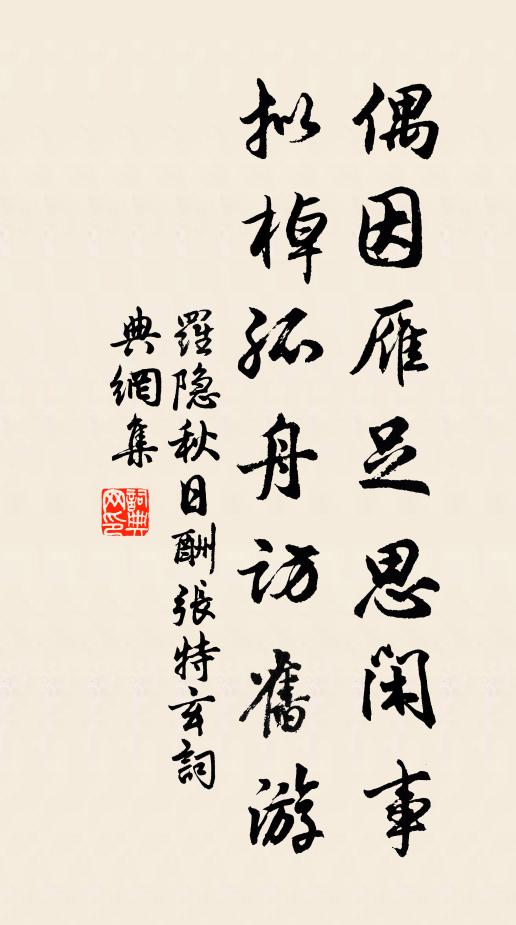 偶因雁足思閑事
拟棹孤舟訪舊游
羅隐秋日酬張特玄詞
典網集
詞典網印